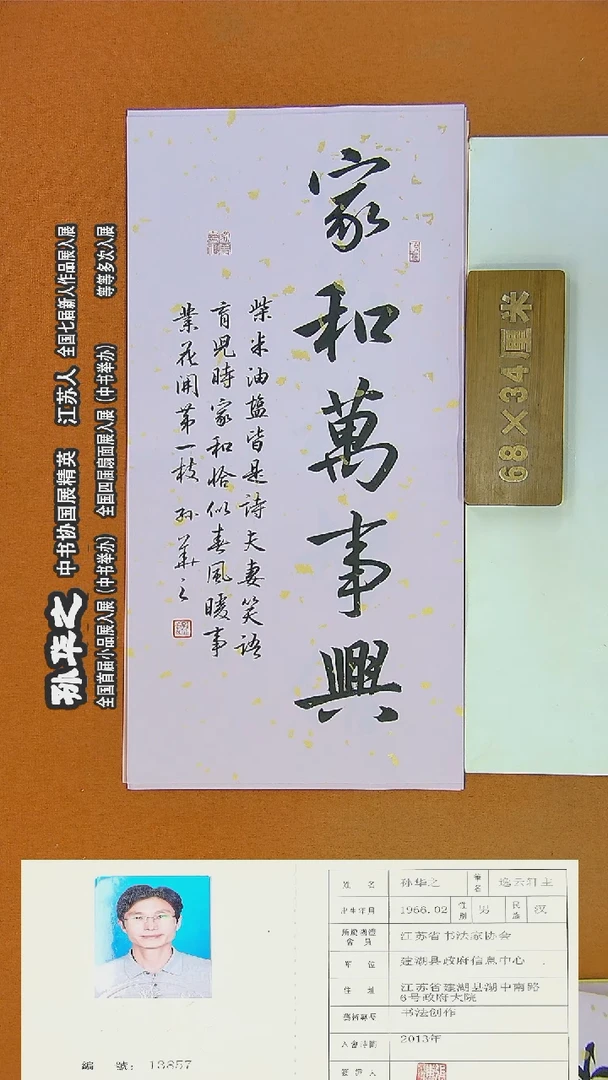 家和萬事興
柴米油鹽皆是詩夫妻笑語
育児時家和恰似春風暖事
業花開第一枝 孫華之
68×34厘米
孙华之 中书协国展精英 江苏人 全国七届新人作品展入展
全国首届小品展入展(中书举办) 全国四届扇面展入展(中书举办) 等等多次入展
姓 名 孙华之 笔名 逸云轩主
出生年月 1966.02 性别 男 民族 汉
会 员 江苏省书法家协会
单 位 建湖县政府信息中心
住 址 江苏省建湖县湖中南路
6号政府大院
书法创作
入會時間 2013年
编 號: 13857